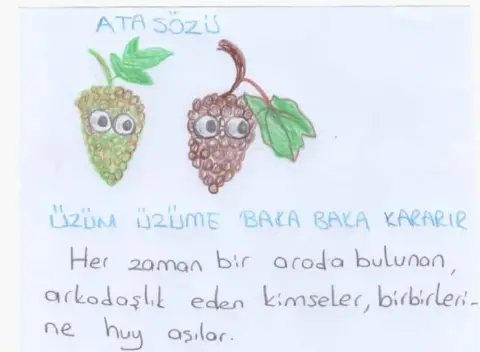 ATA SÖZÜ
ÜZÜM ÜZÜME BAKA BAKA KARARIR
Her zaman bir arada bulunan,
arkadaşlık eden kimseler, birbirleri-
ne huy aşılar.